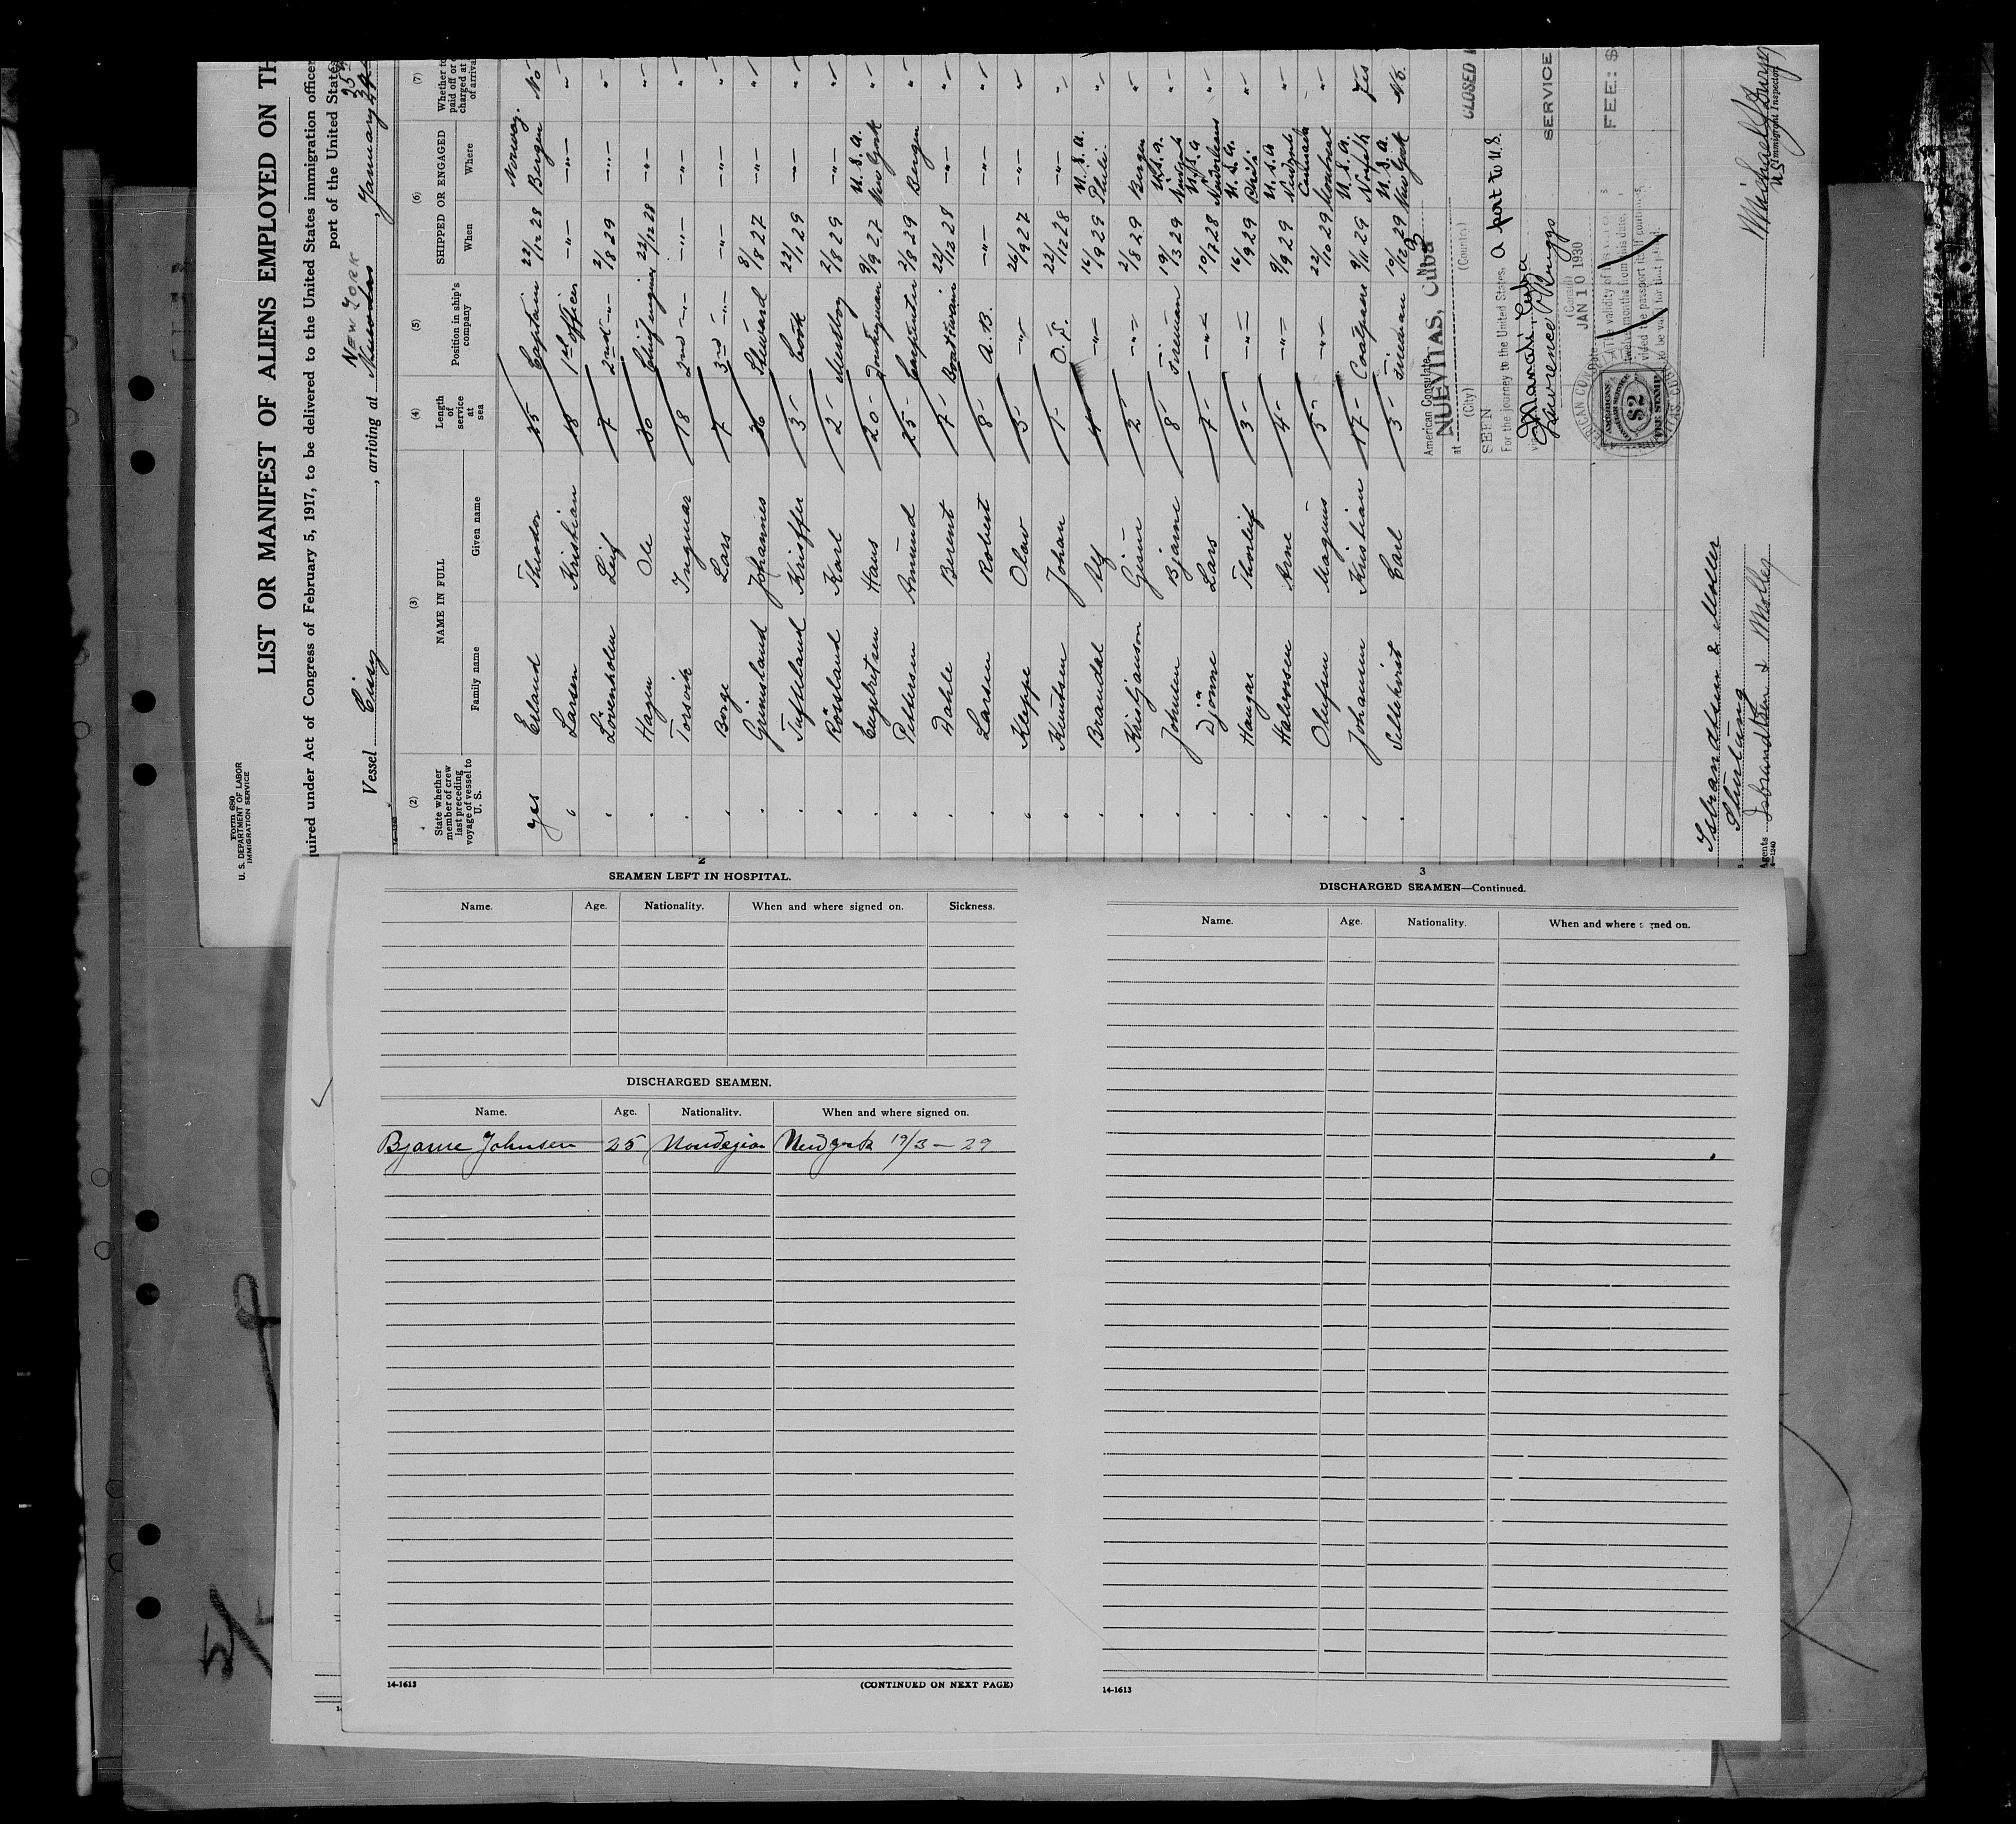 Form 680
U. S. DEPARTMENT OF LABOR
IMMIGRATION SERVICE
LIST OR MANIFEST OF ALIENS EMPLOYED ON TH
quired under Act of Congress of February 5, 1917, to be delivered to the United States immigration officer
port of the United States
NEW YORK
Vessel , arriving at , January
(2) (3) (4) (5) (6) (7)
State whether member of crew last preceding voyage of vessel to U. S.
NAME IN FULL
Family name Given name
Length of service at sea
Position in ship's company
SHIPPED OR ENGAGED
When Where
Whether to paid off or charged at of arrival
yes Erland Thodor 25 Captain 22/12 28 Norway Bergen No
" Larsen Kristian 18 1st officer -"- -"- "
" Lövenholm Leif 7 2nd -"- 2/8 29 -"- "
" Hagen Ole 30 Chief engine 22/12 28 -"- "
" Torsvik Ingvar 18 2nd -"- -"- -"- "
" Borge Lars 7 3rd -"- -"- -"- "
" Grimsland Johannes 26 Steward 8/8 27 -"- "
" Tuftland Kristffer 3 Cook 22/1 29 -"- "
" Rösland Karl 2 Messboy 2/8 29 -"- "
" Engbretsen Hans 20 Donkeyman 9/9 27 U.S.A. New York "
" Petersen Amund 25 Carpenter 2/8 29 Bergen "
" Dahle Berent 7 Boatswain 22/12 28 -"- "
" Larsen Robert 8 A.B. -"- -"- "
" Kleppe Olav 3 -"- 26/9 27 -"- "
" Knutsen Johan 1 O.S. 22/12 28 -"- "
" Brandal Alf 4 -"- 16/9 29 U.S.A. Phili. "
" Kristjanson 2 -"- 2/8 29 Bergen "
" Johnsen Bjarne 8 Fireman 19/3 29 U.S.A. Newyork "
" Djönne Lars 7 -"- 10/7 28 U.S.A. Neworleans "
" Haugar Thorleif 3 -"- 16/9 29 U.S.A. Phili. "
" Halvensen Arne 4 -"- 9/9 29 U.S.A Newyork "
" Olufsen Magnus 5 -"- 22/10 29 Canada Montreal "
" Johansen Kristian 17 9/11 29 U.S.A. Norfolk Yes
" Carl 3 Fireman 10/12 29 U.S.A. New York No.
American Consulate
at NUEVITAS, Cuba
(City) (Country)
CLOSED
SEEN
For the journey to the United States, A port to U.S.
via Manati, Cuba
Lawrence P. Briggs
(Consul)
SERVICE
JAN 10 1930
FEE: $
AMERICAN
$2
FEE STAMP
Michael
U.S. Immigrant Inspector
Isbrandtsen & Moller
Agents Isbrandtsen & Moller
14—1240
2
SEAMEN LEFT IN HOSPITAL.
Name. Age. Nationality. When and where signed on. Sickness.
DISCHARGED SEAMEN.
Name. Age. Nationality. When and where signed on.
Bjarne Johnsen 25 Norwegian Newyork 19/3 - 29
14-1613 (CONTINUED ON NEXT PAGE)
3
DISCHARGED SEAMEN—Continued.
Name. Age. Nationality. When and where signed on.
14-1613